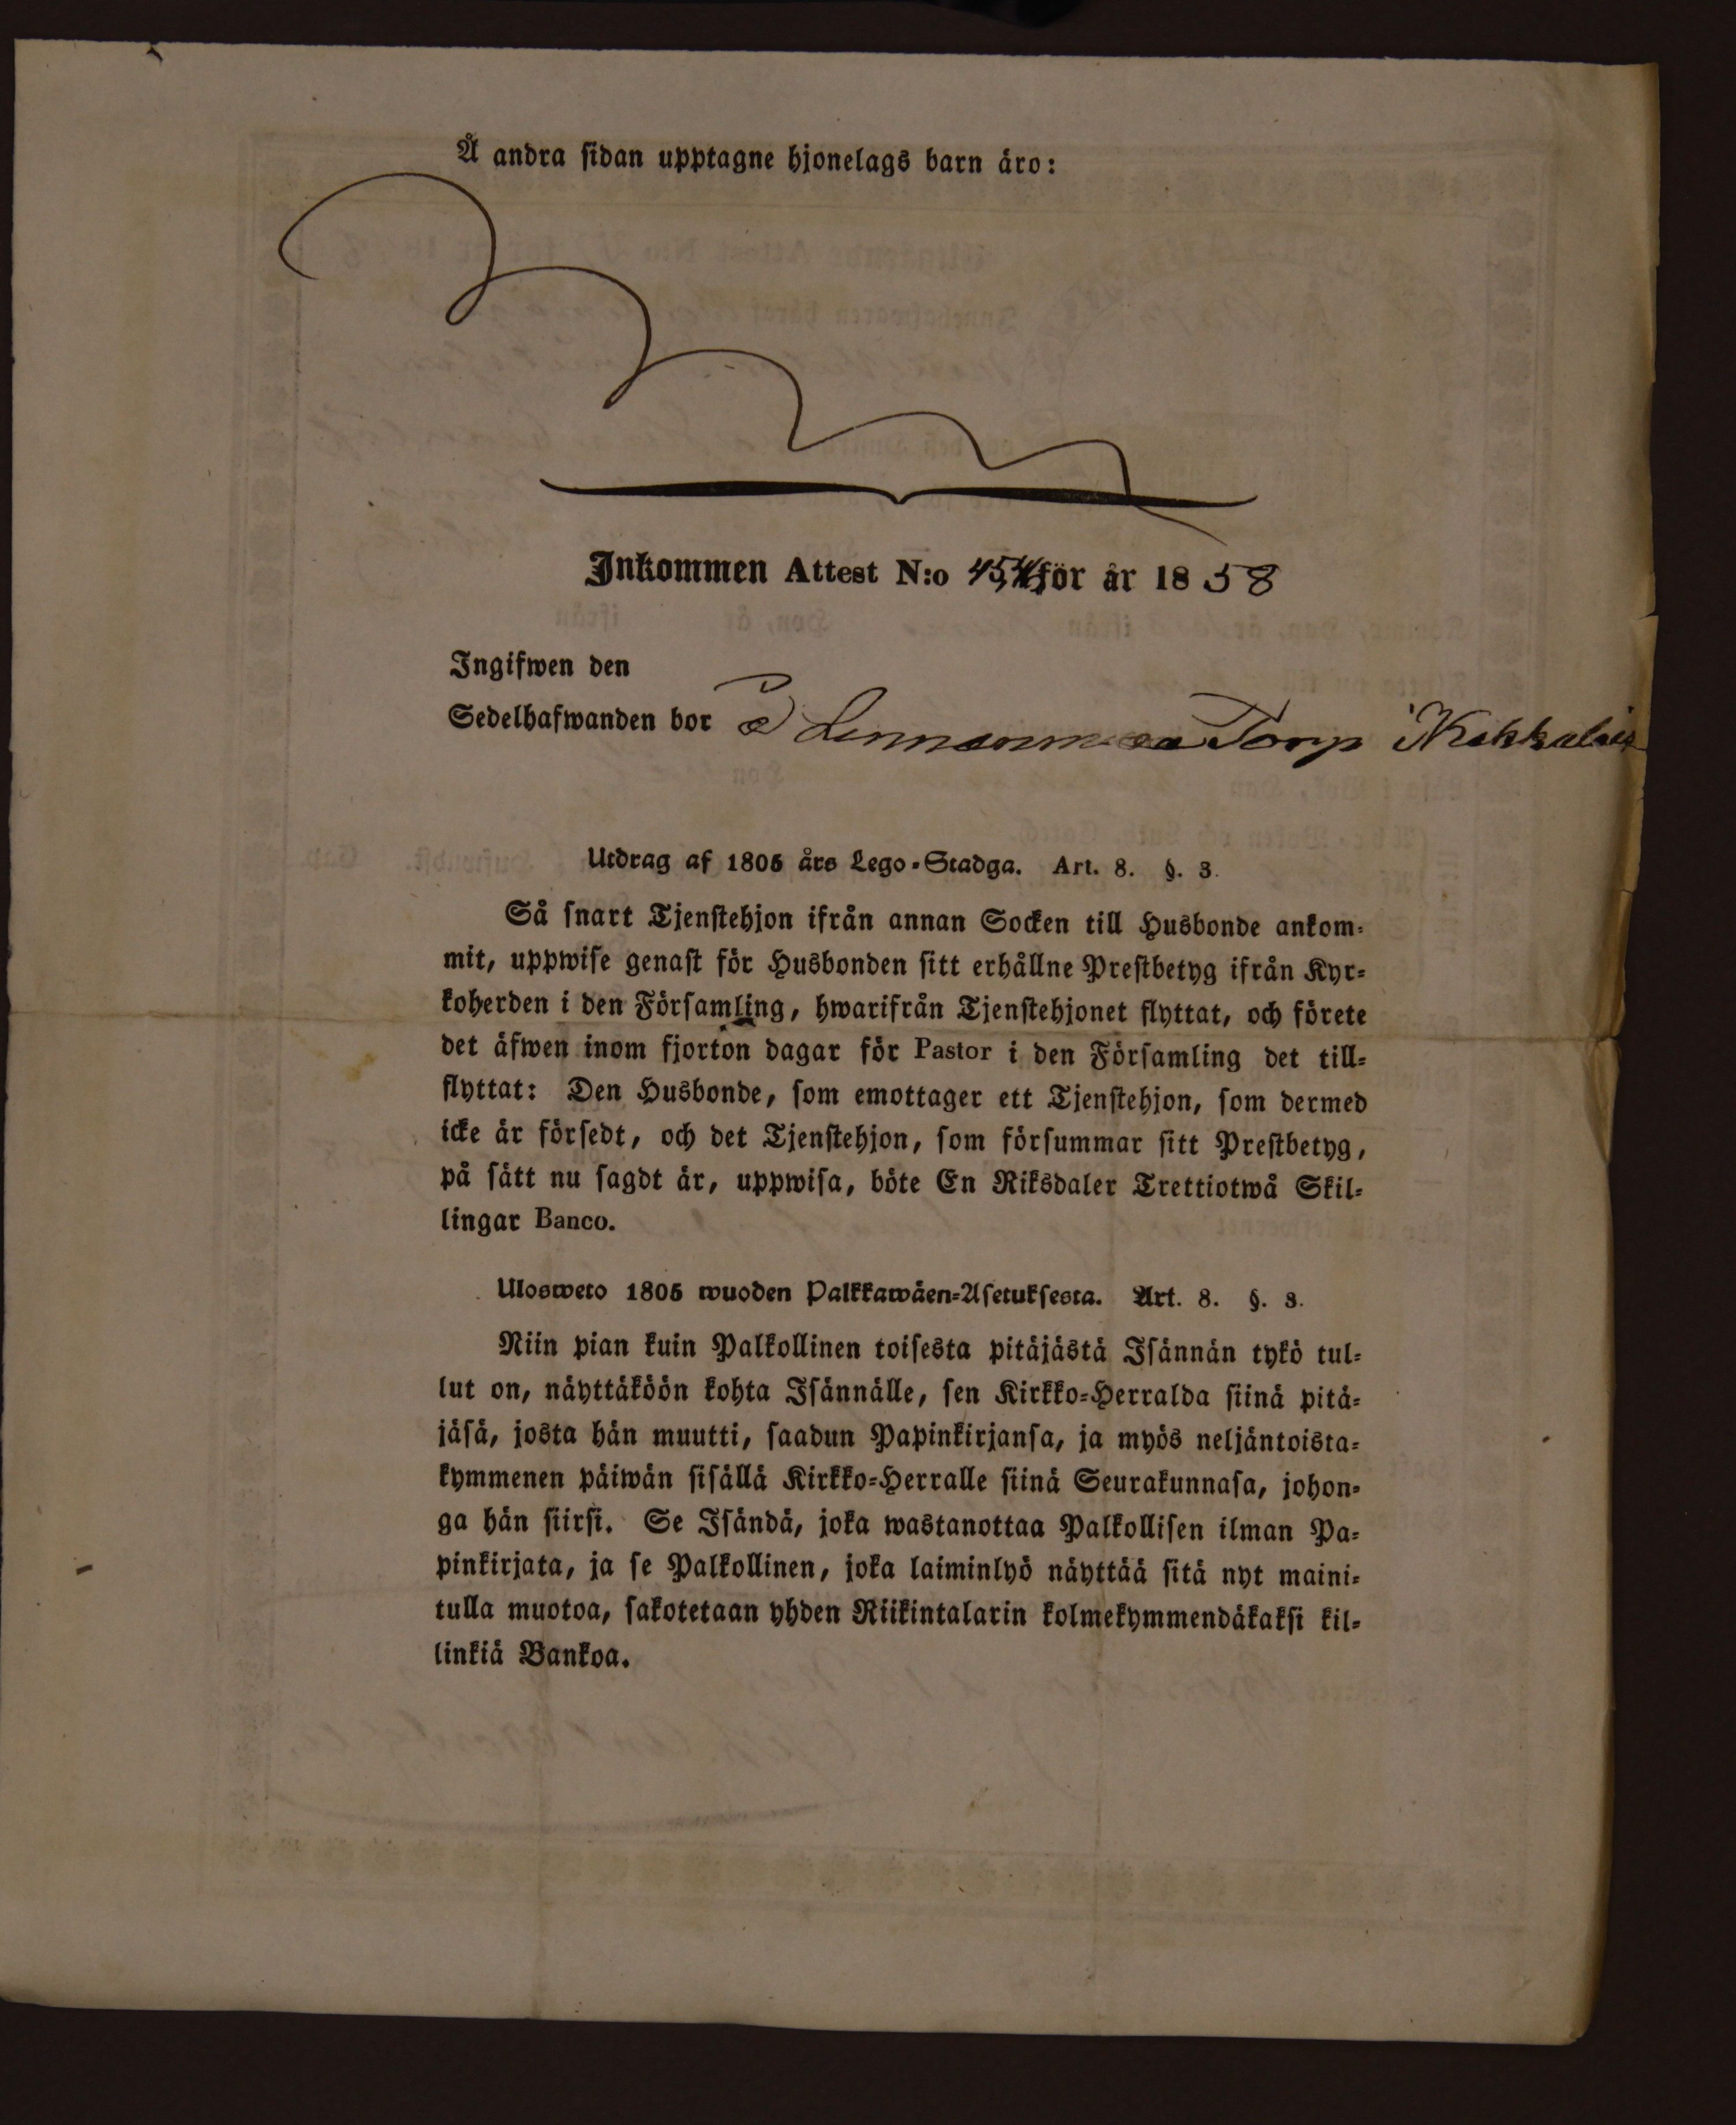 Å andra sidan upptagne hjonelags barn äro:
Inkommen Attest N:o för år 1858
Ingifwen den
Sedelhafwanden bor å Linnanmaa Torp
Utdrag af 1805 års Lego-Stadga. Art. 8. §. 3.
Så snart Tjenstehjon ifrån annan Socken till Husbonde ankom-
mit, uppwise genast för Husbonden sitt erhållne Prestbetyg ifrån Kyr-
koherden i den Församling, hwarifrån Tjenstehjonet flyttat, och förete
det äfwen inom fjorton dagar för Pastor i den Församling det till-
flyttat: Den Husbonde, som emottager ett Tjenstehjon, som dermed
icke är försedt, och det Tjenstehjon, som försummar sitt Prestbetyg,
på sätt nu sagdt är, uppwisa, böte En Riksdaler Trettiotwå Skil-
lingar Banco.
Ulosweto 1805 wuoden Palkkawäen-Asetuksesta. Art. 8. §. 3.
Niin pian kuin Palkollinen toisesta pitäjästä Isännän tykö tul-
lut on, näyttäköön kohta Isännälle, sen Kirkko-Herralda siinä pitä-
jäsä, josta hän muutti, saadun Papinkirjansa, ja myös neljäntoista-
kymmenen päiwän sisällä Kirkko-Herralle siinä Seurakunnasa, johon-
ga hän siirsi. Se Isändä, joka wastanottaa Palkollisen ilman Pa-
pinkirjata, ja se Palkollinen, joka laiminlyö näyttää sitä nyt maini-
tulla muotoa, sakotetaan yhden Riikintalarin kolmekymmendäkaksi kil-
linkiä Bankoa.